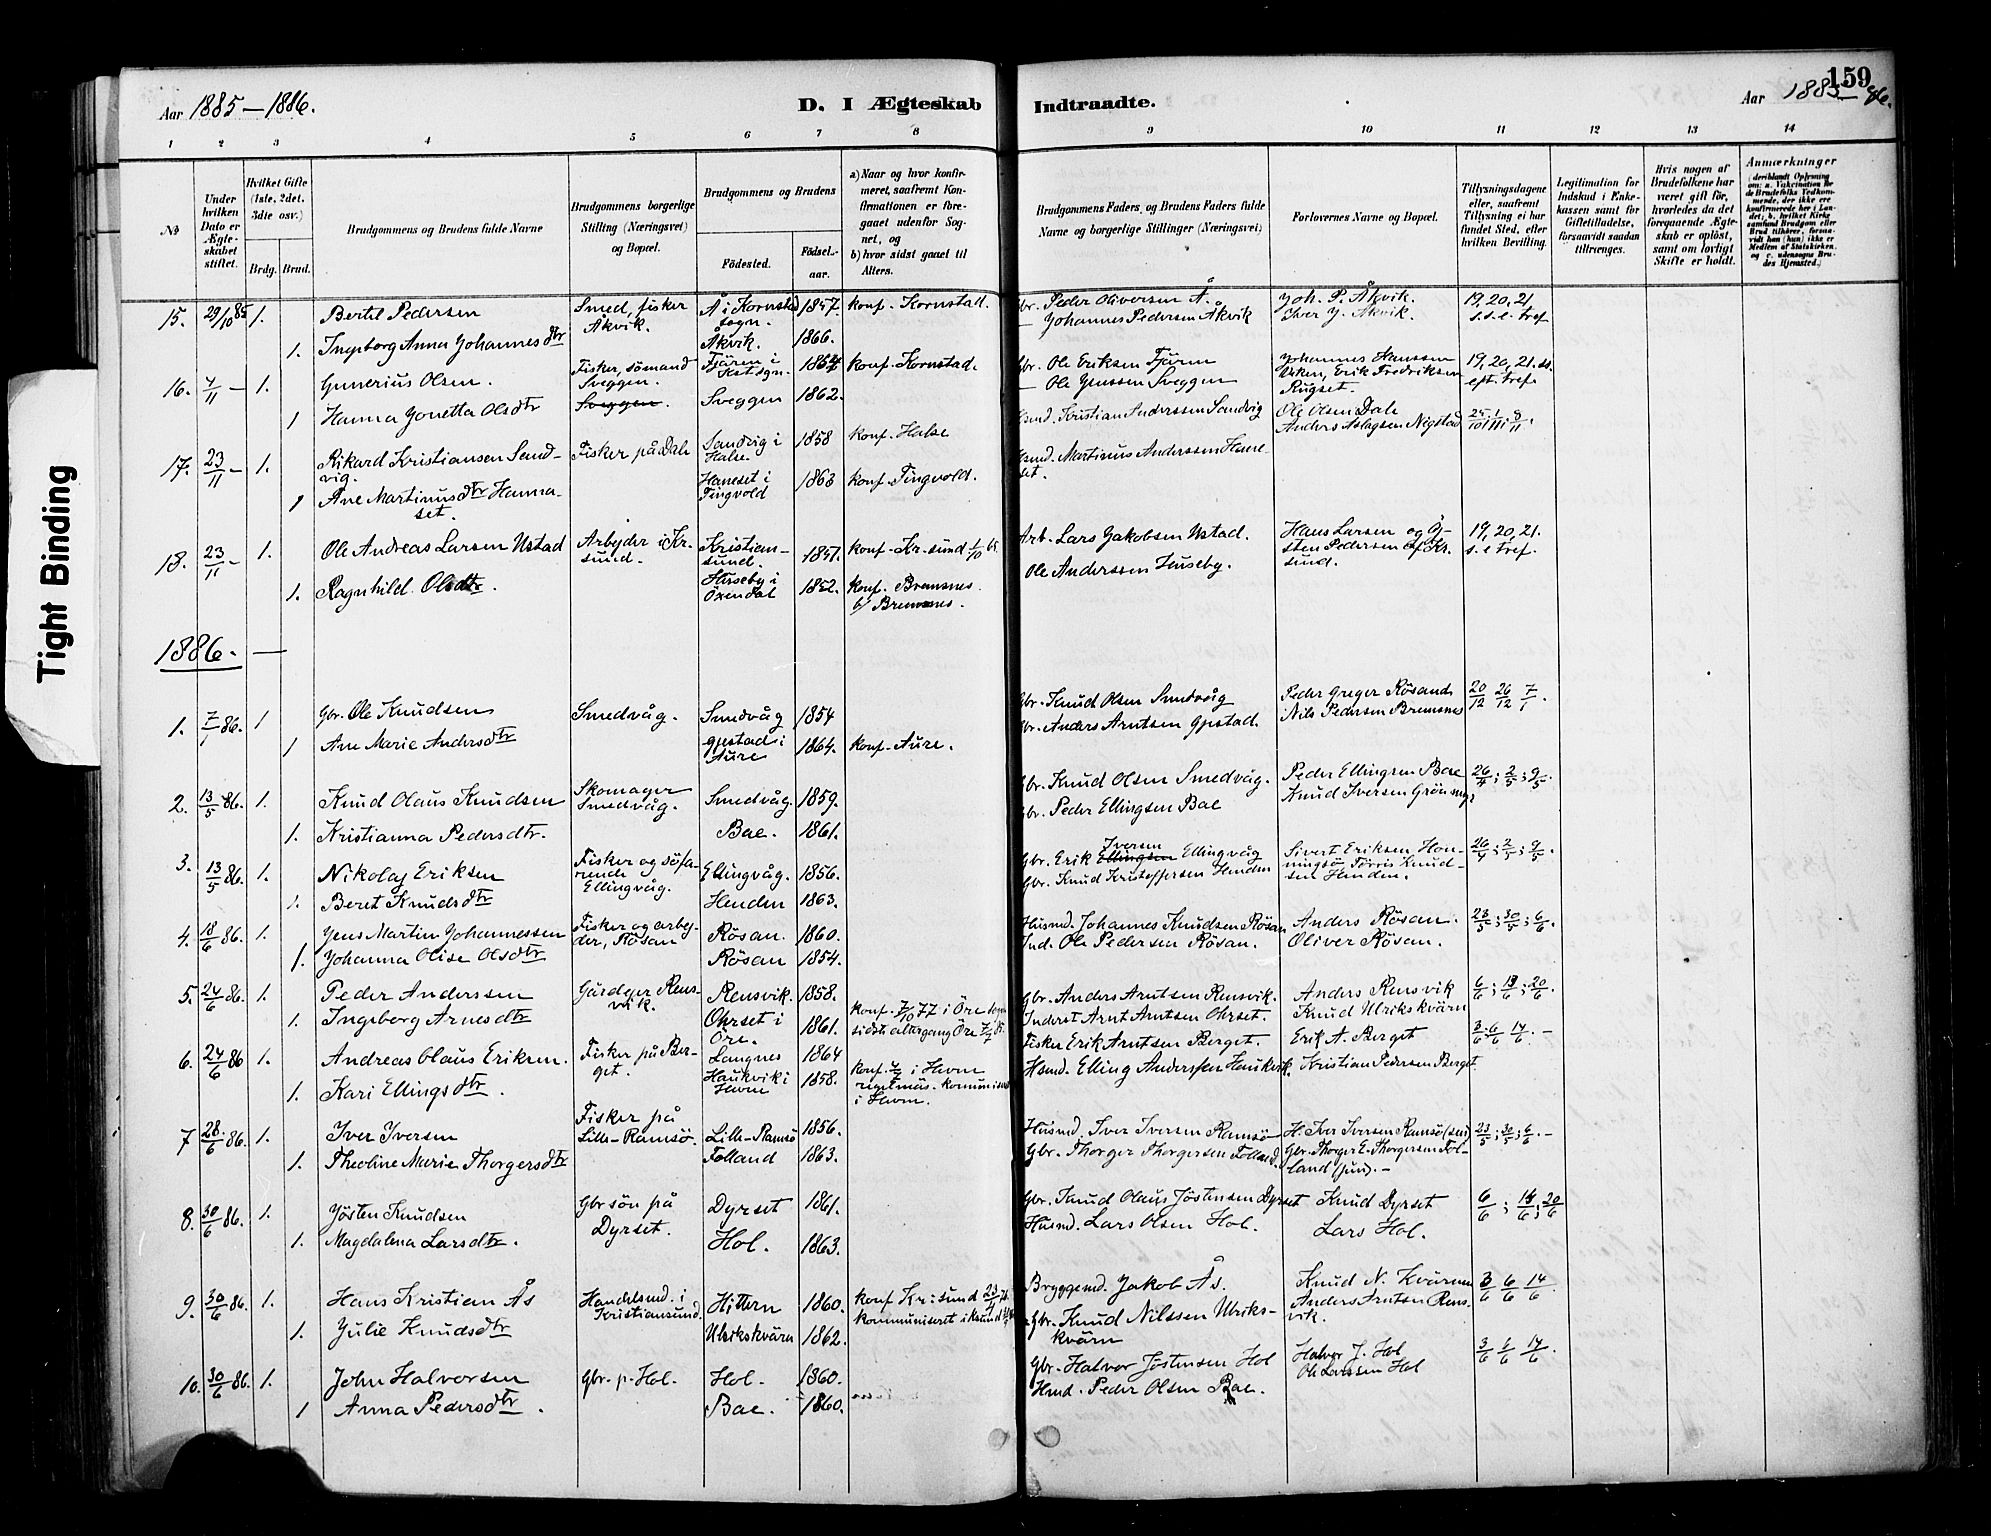 159
Aar 1885–1886.
D. I Ægteskab Indtraadte.
Aar 1885–86.
1 2 3 4 5 6 7 8 9 10 11 12 13 14
№
Under hvilken Dato er Ægteskabet stiftet.
Hvilket Gifte (1ste, 2det, 3die osv.)
Brdg. Brud.
Brudgommens og Brudens fulde Navne
Brudgommens borgerlige Stilling (Næringsvei) og Bopæl.
Brudgommens og Brudens
Födested.
Födsels-aar.
a) Naar og hvor konfirmeret, saafremt Konfirmationen er foregaaet udenfor Sognet, og
b) hvor sidst gaaet til Alters.
Brudgommens Faders og Brudens Faders fulde Navne og borgerlige Stillinger (Næringsvei)
Forlovernes Navne og Bopæl.
Tillysningsdagene eller, saafremt Tillysning ei har fundet Sted, efter hvilken Bevilling.
Legitimation for Indskud i Enkekassen samt for Giftetilladelse, forsaavidt saadan tiltrænges.
Hvis nogen af Brudefolkene har været gift för, hvorledes da det foregaaende Ægteskab er oplöst, samt om lovligt Skifte er holdt.
Anmærkninger
(deriblandt Oplysning om: a. Vakcination for de Brudefolks Vedkommende, der ikke ere konfirmerede her i Landet; b. hvilket Kirkesamfund Brudgom eller Brud tilhörer, forsaavidt han (hun) ikke er Medlem af Statskirken, og c. udensogns Brudes Hjemsted.)
15. 29/10 85 1. Bertel Pedersen Smed, fisker Åkvik. Å i Kornstad sogn. 1857. konf. Kornstad. Gbr. Peder Oliversen Å. Joh. P. Åkvik. 19, 20, 21.
1. Ingeborg Anna Johannesdtr Åkvik. 1866. — Johannes Pedersen Åkvik Iver J. Åkvik. s.s.e. tref
16. 4/11 – 1. Gunerius Olsen. Fisker, sömand Sveggen. Fjären i 1864 konf. Kornstad. Gbr. Ole Eriksen Fjären Johannes Hanssen 19, 20, 21. ss.
1 Hanna Jonetta Olsdtr Sveggen. Sveggen 1862. — Ole Jenssen Sveggen Erik Fredriksen Rugset. eft. tref.
17. 23/11 – 1. Rikard Kristiansen Sandvig. Fisker på Dale Sandvig i Halse. 1858 konf. Halse Husmd. Kristian Anderssen Sandvig Ole Olsen Dale 25/10 1/11 8/11.
1 Ane Martinusdtr Hannaset. Haneset i Tingvold 1863 konf. Tingvold. Husmd. Martinus Anderssen Haneset. Anders Aslagsen Nigstad
18. 23/11 – 1. Ole Andreas Larsen Ustad Arbejder i Kr-sund. Kristiansund. 1851. konf. Kr.sund 1/10 65. Arb. Lars Jakobsen Ustad. Hans Larsen og Östen Pedersen af Kr.sund. 19, 20, 21. s.e tref.
1. Ragnhild Olsdtr. Huseby i Öxendal 1852. konf. Bremsnes. b/ Bremsnes. Ole Anderssen Huseby.
1886. —
1. 7/1 86. 1 Gbr. Ole Knudsen Smedvåg. Smedvåg 1854 Gbr. Knud Olsen Smedvåg Peder Greger Rösand 20/12 26/12 7/1.
1 Ane Marie Andersdtr Gjestad i Aure 1864. konf. Aure. Gbr. Anders Arntsen Gjestad. Nils Pedersen Bremsnes
2. 13/5 86. 1. Knud Olaus Knudsen Skomager Smedvåg. Smedvåg. 1859. Gbr. Knud Olsen Smedvåg. Peder Ellingsen Bae 26/4; 2/5; 9/5.
1. Kristianna Pedersdtr. Bae. 1861. Gbr. Peder Ellingsen Bae Knud Iversen Grönmyr
3. 13/5 86. 1. Nikolaj Eriksen Fisker og söfarende Ellingvåg. Ellingvåg. 1856. Gbr. Erik Ellingsen Iversen Ellingvåg Sivert Eriksen Honningsö 26/4; 2/5; 9/5.
1. Beret Knudsdtr Henden 1863. Gbr. Knud Kristoffersen Henden Törris Knudsen Henden.
4. 18/6 86. 1. Jens Martin Johannessen Fisker og arbejder, Rösan Rösan. 1860. Husmd. Johannes Knudsen Rösan Anders Rösan. 23/5; 30/5; 6/6.
1. Johanna Olise Olsdtr Rösan 1854. Ind. Ole Pedersen Rösan. Oliver Rösan.
5. 24/6 86. 1. Peder Anderssen Gårdejer Rensvik. Rensvik. 1858. Gbr. Anders Arntsen Rensvik. Anders Rensvik 6/6; 13/6; 20/6
1. Ingeborg Arnesdtr Ohrset i Öre. 1861. konf. 7/10 77 i Öre sogn sidst altergang Öre Inderst Arnt Arntsen Ohrset. Knud Ulrikskvärn
6. 24/6 86 1. Andreas Olaus Eriksen. Fisker på Berget. Langnes 1864 Fisker Erik Arntsen Berget. Erik A. Berget 3/6 6/6 14/6. –
1. Kari Ellingsdtr. Haukvik i Hevne 1858. konf. i Hevne regelmäs. kommunicert i Hevne. Hsmd. Elling Anderssen Haukvik. Kristian Pedersen Berget
7 28/6 86. 1. Iver Iversen Fisker på Lille-Ramsö. Lille-Ramsö 1856. Husmd. Iver Iversen Ramsö H. Iver Iversen Ramsö (sen) 23/5; 30/5; 6/6. –
1. Theoline Marie Thorgersdtr Folland 1863. Gbr. Thorger Thorgersen Folland. Gbr. Thorger E. Thorgersen Folland (jun). –
8. 30/6 86. 1. Jösten Knudsen Gbr sön på Dyrset. Dyrset 1861. Gbr. Knud Olaus Jöstensen Dyrset Knud Dyrset 6/6; 14/6; 20/6
1. Magdalena Larsdtr. Hol. 1863. Husmd. Lars Olsen Hol. Lars Hol.
9. 30/6 86. 1. Hans Kristian Ås Handelsmd. i Kristiansund. Hittern 1860. konf Kr.sund kommuniseret i Ksund Bryggemd. Jakob Ås. Knud N. Kvärnen 3/6 6/6 14/6.
1. Julie Knudsdtr Ulrikskvärn 1862. Gbr. Knud Nilssen Ulrikskvärn Anders Arntsen Rensvik.
10. 30/6 86. 1. John Halvorsen Gbr. p. Hol. Hol. 1860. Gbr. Halvor Jöstensen Hol Halvor J. Hol 3/6 6/6 14/6.
1 Anna Pedersdtr. Bae. 1860. Hsmd. Peder Olsen Bae. Ole Larssen Hol
Tight Binding